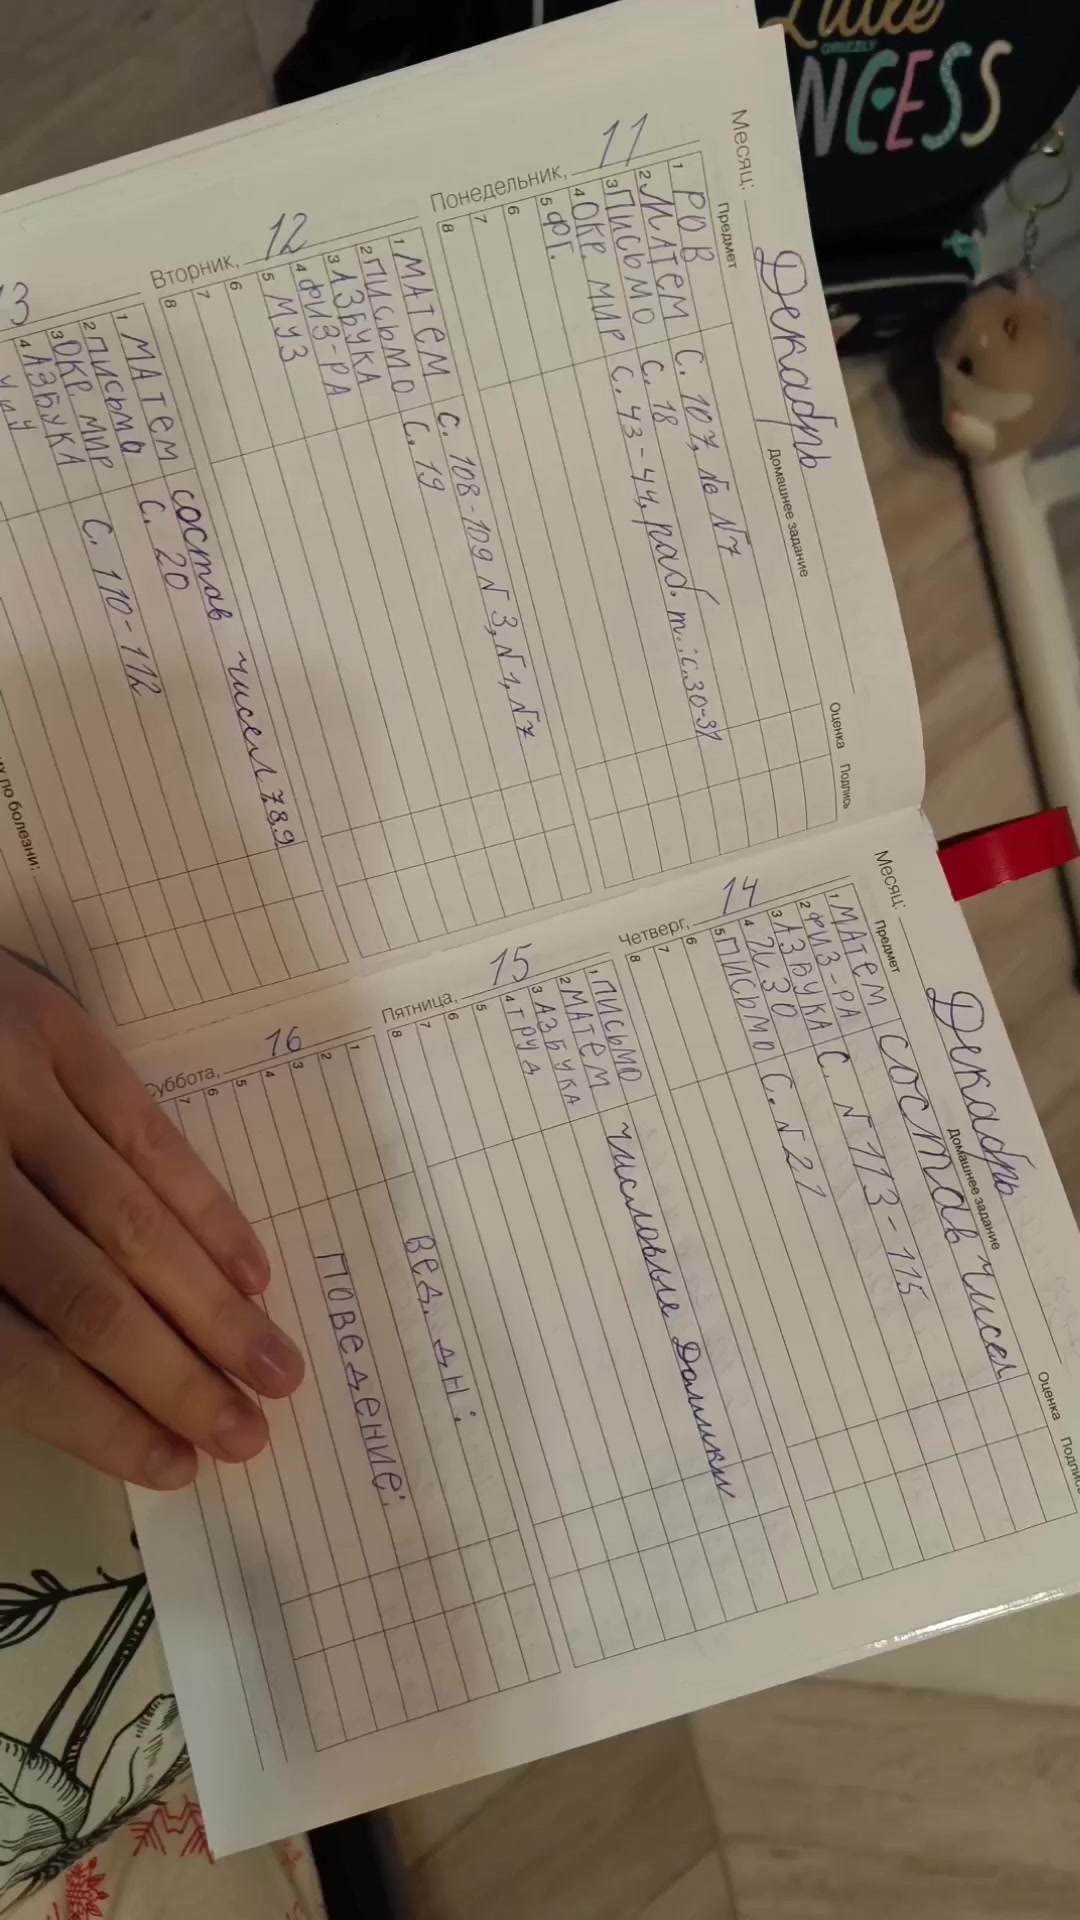 Little
GRIZZLY
NCESS
Месяц: Декабрь
Предмет Домашнее задание Оценка Подпись
Понедельник, 11
1 РОВ
2 МАТЕМ С. 107, № №7
3 ПИСЬМО С. 18
4 ОКР. МИР С. 43-44, раб. т.: с. 30-31
5 ФГ.
6
7
8
Вторник, 12
1 МАТЕМ С. 108-109 № 3, №1, №7
2 ПИСЬМО С. 19
3 АЗБУКА
4 ФИЗ-РА
5 МУЗ
6
7
8
3
1 МАТЕМ состав чисел 7,8,9
2 ПИСЬМО С. 20
3 ОКР. МИР
4 АЗБУКА С. 110-112
по болезни:
Месяц: Декабрь
Предмет Домашнее задание Оценка Подпись
Четверг, 14
1 МАТЕМ Состав чисел
2 ФИЗ-РА
3 АЗБУКА С. № 113-115
4 ИЗО
5 ПИСЬМО С. № 21
6
7
8
Пятница, 15
1 ПИСЬМО
2 МАТЕМ числовые домики
3 АЗБУКА
4 ТРУД
5
6
7
8
Суббота, 16
1
2
3
4
5
6
7
ВЕД. ДН:
ПОВЕДЕНИЕ: